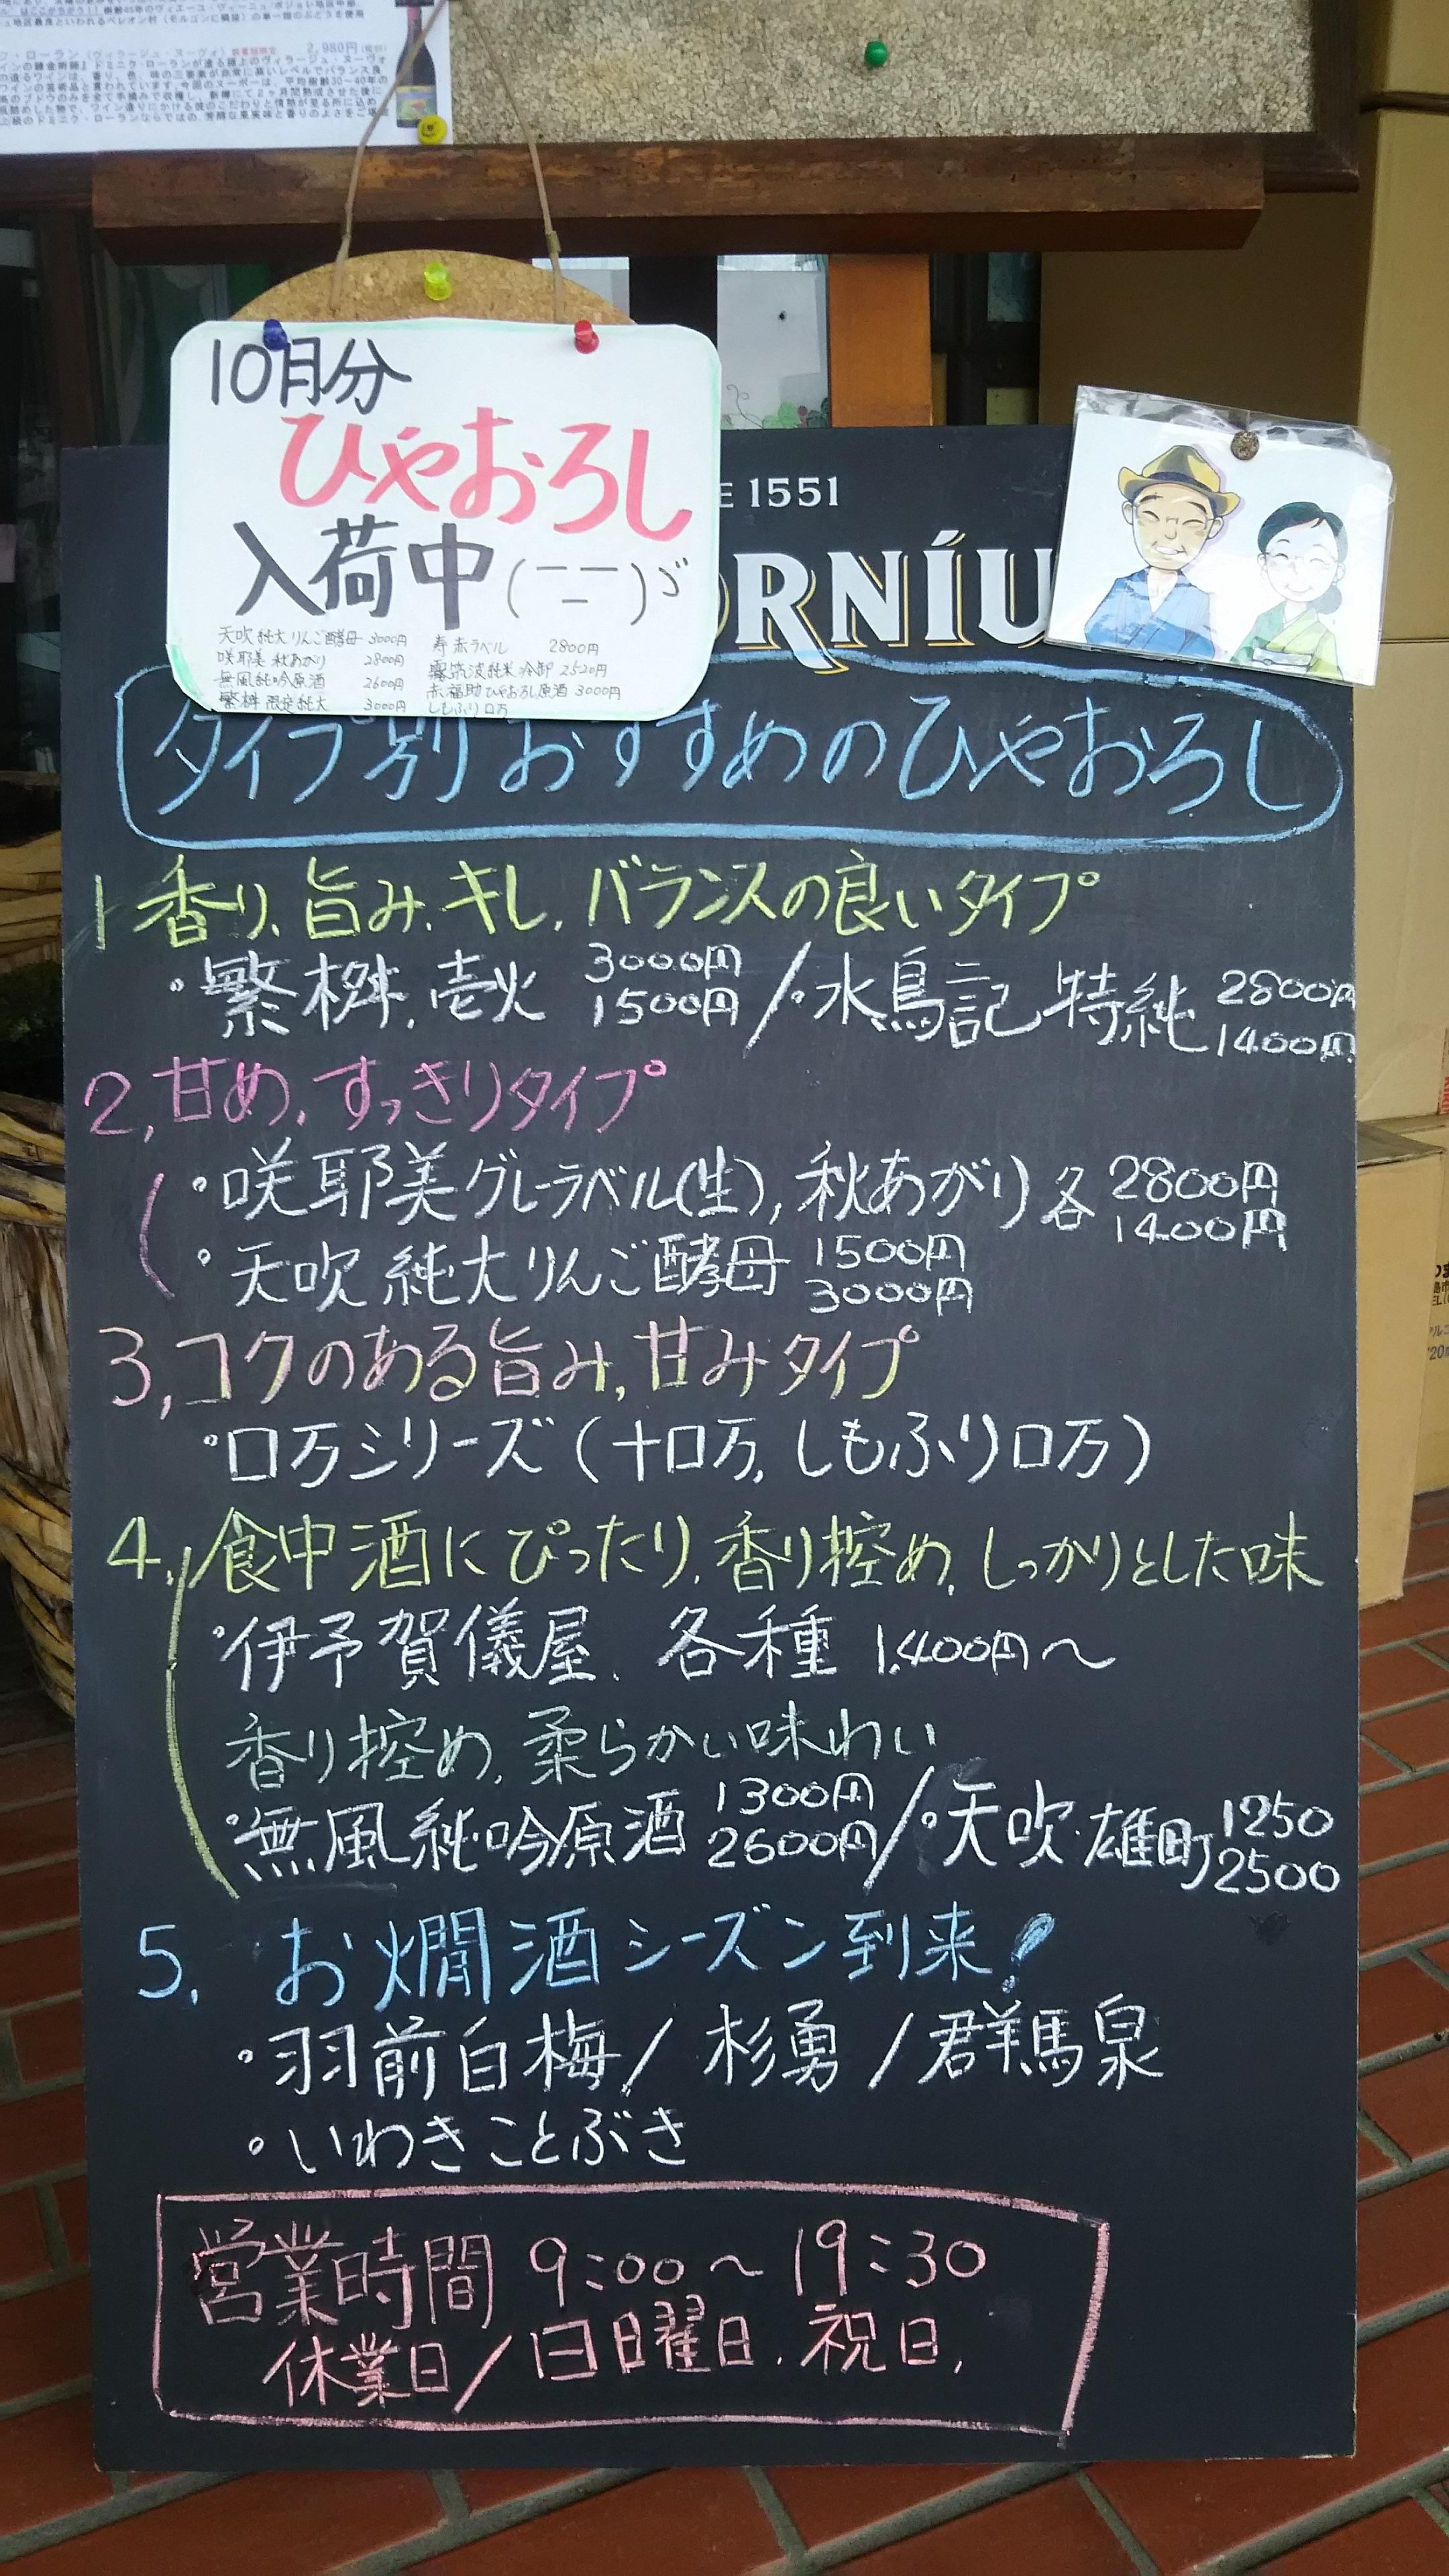 2,980円
10月分
ひやおろし
入荷中
天吹 純大りんご酵母 3000円
咲耶美 秋あがり 2800円
無風純吟原酒 2600円
繁桝 限定純大 3000円
寿 赤ラベル 2800円
霧筑波純米 冷卸 2520円
赤福助ひやおろし原酒 3000円
しもふりロ万
E 1551
ORNÍU
タイプ別おすすめのひやおろし
1 香り、旨み、キレ、バランスの良いタイプ
・繁桝、壱火 3000円 1500円 / ・水鳥記 特純 2800円 1400円
2, 甘め、すっきりタイプ
・咲耶美グレーラベル(生), 秋あがり 各 2800円 1400円
・天吹 純大りんご酵母 1500円 3000円
3, コクのある旨み, 甘みタイプ
・ロ万シリーズ(十ロ万, しもふりロ万)
4, 食中酒にぴったり, 香り控め, しっかりとした味
・伊予賀儀屋、各種 1,400円〜
香り控め, 柔らかい味わい
・無風 純・吟原酒 1300円 2600円 / ・天吹・雄町 1250 2500
5, お燗酒シーズン到来!
・羽前白梅 / 杉勇 / 群馬泉
・いわきことぶき
営業時間 9:00〜19:30
休業日/日曜日、祝日、